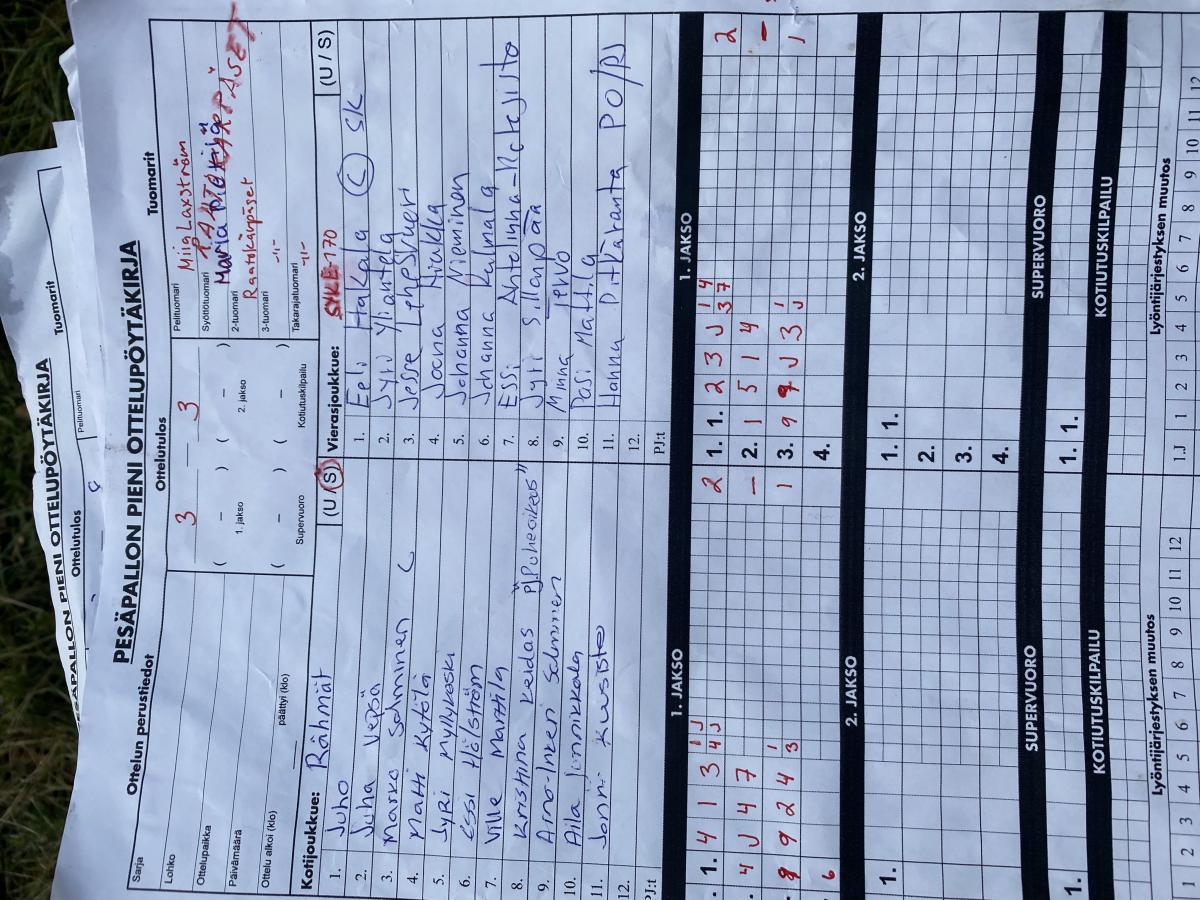 PESÄPALLON PIENI OTTELUPÖYTÄKIRJA
Ottelutulos
Tuomarit
Pelituomari
PESÄPALLON PIENI OTTELUPÖYTÄKIRJA
Ottelun perustiedot
Ottelutulos
Tuomarit
Sarja
Lohko
Ottelupaikka
Päivämäärä
Ottelu alkoi (klo)
päättyi (klo)
3 – 3
( – ) ( – )
1. jakso
2. jakso
( – ) ( – )
Supervuoro
Kotiutuskilpailu
Pelituomari
Miia Laxström
Syöttötuomari
2-tuomari
Raatokärpäset
3-tuomari
-11-
Takarajatuomari
-11-
Kotijoukkue: Rähmät (U / S)
1. Juho
2. Juha Vepsä
3. Marko Salminen C
4. Matti Kytölä
5. Jyri Myllykoski
6. Essi Hölström
7. Ville Marttila
8. Kristiina Keidas PJ "Puheoikeus"
9. Arno-Inkeri Salminen
10. Aila Jonnikkala
11. Jonni Kuusisto
12.
PJ:t
Vierasjoukkue: SYKE-170 (U / S)
1. Eeli Hakala C SK
2. Jyri Yliantela
3. Jesse Lehesvuori
4. Joona Hiukka
5. Johanna Nieminen
6. Johanna Kulmala
7. Essi Ahtolinna-Ketojisto
8. Jyri Sillanpää
9. Minna Tervo
10. Pasi Mattila
11. Hanna Pitkäranta PO/PJ
12.
PJ:t
1. JAKSO
1. JAKSO
1. 4 1 3 4 1 J J 2
4 J 4 7 –
9 9 2 4 3 1 1
6
1. 1. 2 3 J 3 1 7 4 2
2. 1 5 1 4 –
3. 9 9 J 3 J 1 1
4.
2. JAKSO
2. JAKSO
1.
1. 1.
2.
3.
4.
SUPERVUORO
SUPERVUORO
1.
1. 1.
KOTIUTUSKILPAILU
KOTIUTUSKILPAILU
Lyöntijärjestyksen muutos
Lyöntijärjestyksen muutos
1 2 3 4 5 6 7 8 9 10 11 12
1.J 1 2 3 4 5 6 7 8 9 10 11 12